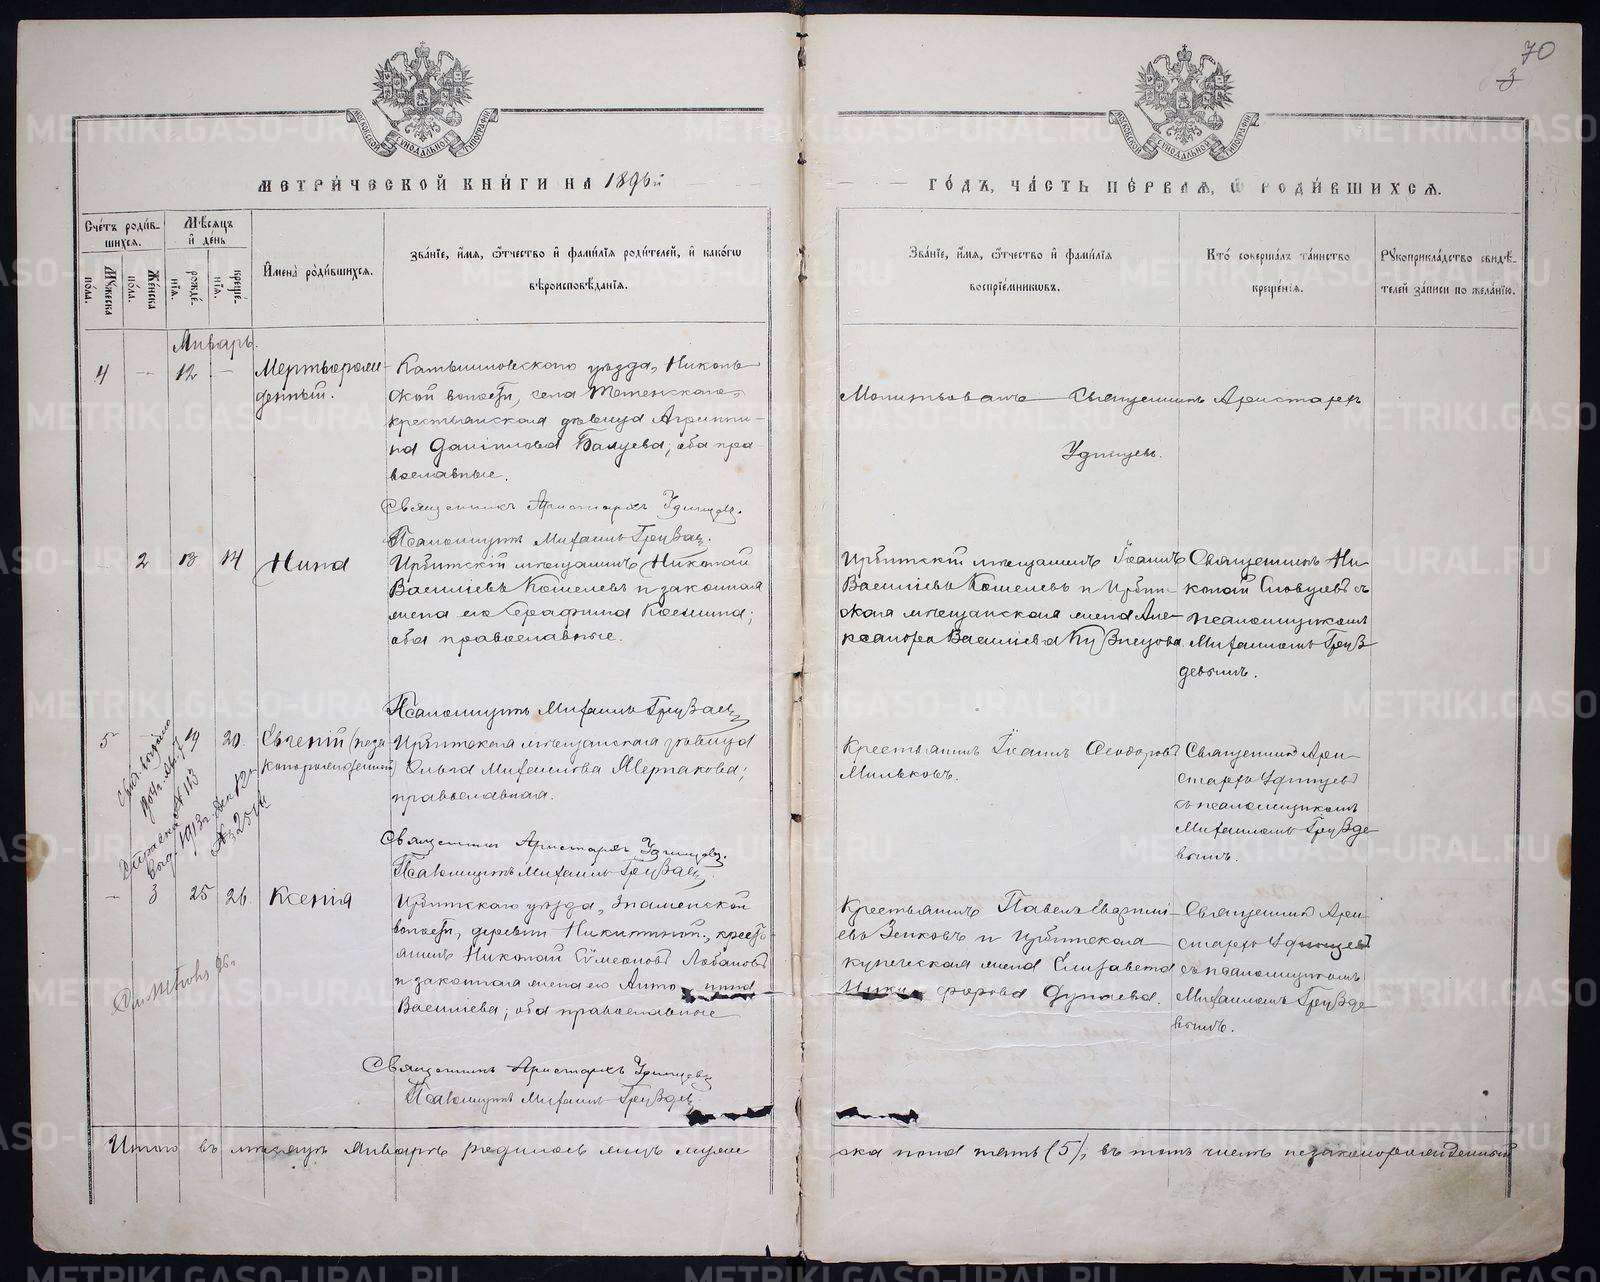 70
3
МОСКОВСКОЙ СѴНОДАЛЬНОЙ ТИПОГРАФІИ
МОСКОВСКОЙ СѴНОДАЛЬНОЙ ТИПОГРАФІИ
МЕТРИЧЕСКОЙ КНИГИ НА 1896й
ГОДЪ, ЧАСТЬ ПЕРВАЯ, Ѡ РОДИВШИХСЯ.
Счетъ родившихся.
Мужеска пола.
Женска пола.
Мѣсяцъ и день
рожденія.
крещенія.
Имена родившихся.
Званіе, имя, ѿчество и фамилія родителей, и какогѡ
вѣроисповѣданія.
Званіе, имя, ѿчество и фамилія
воспріемникѡвъ.
Кто совершалъ таинство
крещенія.
Рукоприкладство свидѣ-
телей записи по желанію.
Январь.
4 — 12 — Мертворож-
денный.
Камышловскаго уѣзда, Николь-
ской волости, села
крестьянская дѣвица Агриппи-
на Даніилова Балуева; оба пра-
вославные.
Священникъ Аристархъ Удинцевъ.
Псаломщикъ Михаилъ Груздевъ.
Молитвовалъ Священникъ Аристархъ
Удинцевъ.
2 13 14 Нина
Ирбитскій мѣщанинъ Николай
Васильевъ Кошелевъ и законная
жена его Серафима Космина;
оба православные.
Псаломщикъ Михаилъ Груздевъ
Ирбитскій мѣщанинъ Іоаннъ
Васильевъ Кошелевъ и Ирбит-
ская мѣщанская жена Але-
ксандра Васильева Кузнецова
Священникъ Ни-
колай Словцовъ съ
псаломщикомъ
Михаиломъ Груз-
девымъ.
5 — 19 20. Евгеній (неза-
конорожденный)
Ирбитская мѣщанская дѣвица
Ольга Михаилова Мертакова;
православная.
Священникъ Аристархъ Удинцевъ.
Псаломщикъ Михаилъ Груздевъ.
Крестьянинъ Іоаннъ Ѳеодоровъ
Мильковъ.
Священникъ Ари-
стархъ Удинцевъ
съ псаломщикомъ
Михаиломъ Груздe-
вымъ.
— 3 25 26 Ксенія
Ирбитскаго уѣзда, Знаменской
волости, деревни Никитиной, кресть-
янинъ Николай Сѵмеоновъ Лобановъ
и законная жена его Антонина
Васильева; оба православные
Священникъ Аристархъ Удинцевъ
Псаломщикъ Михаилъ Груздевъ.
Крестьянинъ Павелъ
Зенковъ и Ирбитская
купеческая жена Елизавета
Никифорова Дунаева.
Священникъ Ари-
стархъ Удинцевъ
съ псаломщикомъ
Михаиломъ Груздe-
вымъ.
Итого въ мѣсяцѣ Январѣ родилось лицъ муже-
ска пола пять (5), въ томъ числѣ незаконорожденный
METRIKI.GASO-URAL.RU